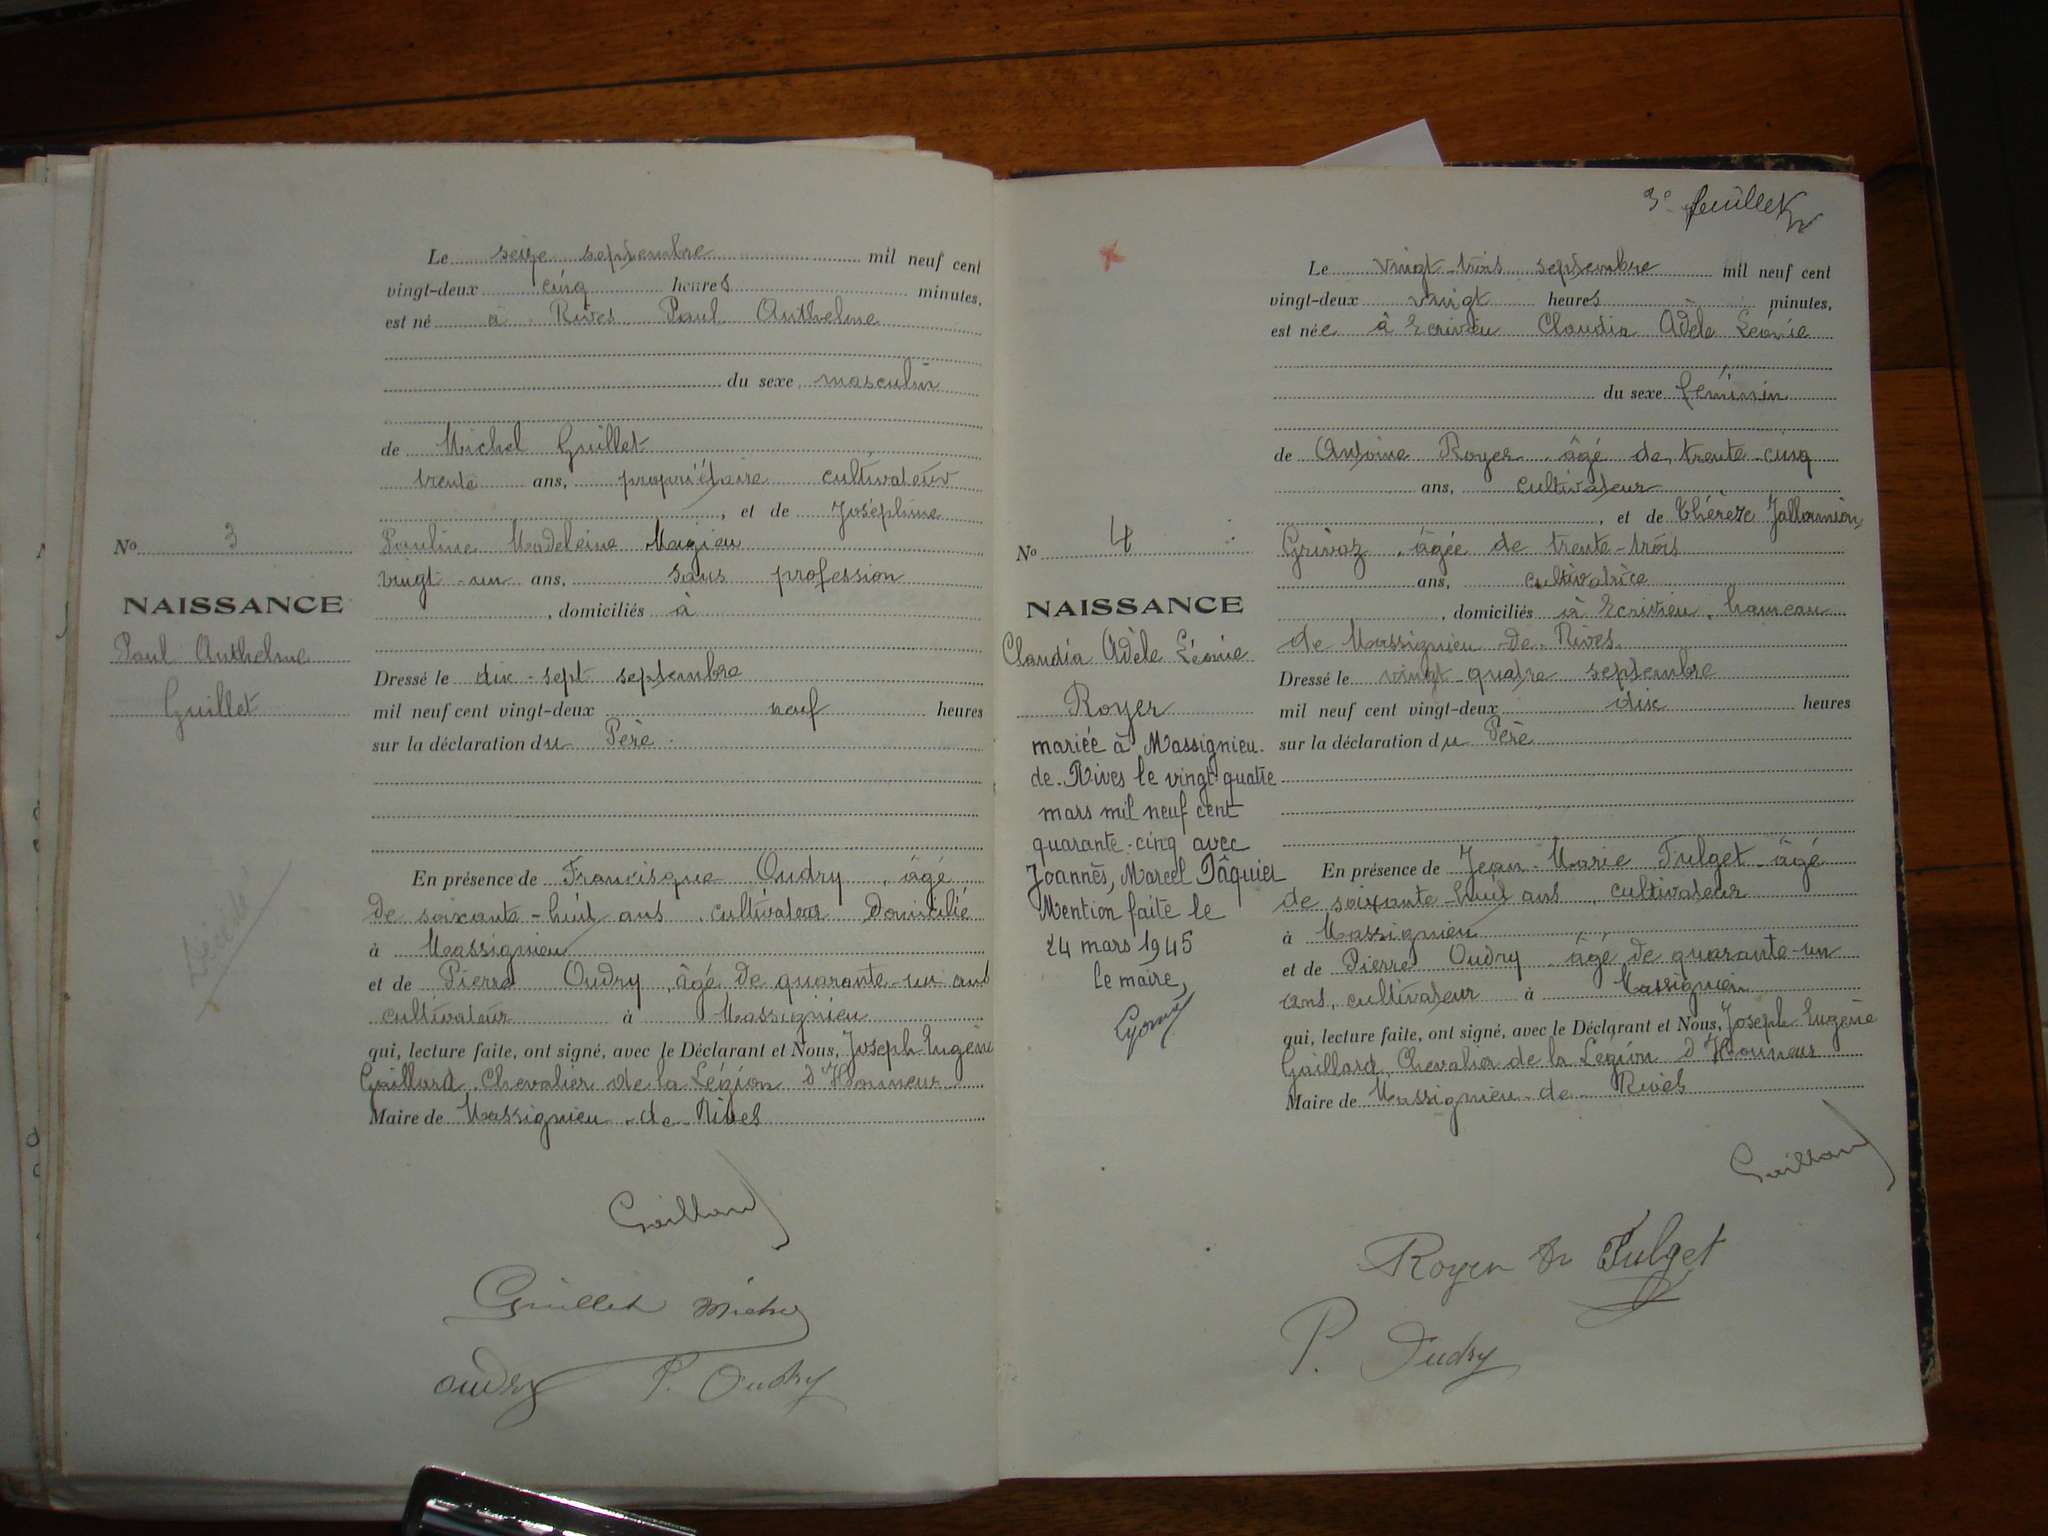 Le seize septembre mil neuf cent
vingt-deux cinq heures minutes,
est né à Rives Paul Anthelme
du sexe masculin
de Michel Guillet
trente ans, propriétaire cultivateur
, et de Joséphine
No 3
Pauline Madeleine Magieu
vingt-un ans, sans profession
NAISSANCE
, domiciliés à
Paul Anthelme
Guillet
Dressé le dix-sept septembre
mil neuf cent vingt-deux neuf heures
sur la déclaration du Père
En présence de Francisque Oudry, âgé
de soixante-huit ans, cultivateur domicilié
à Massignieu
Décédé
et de Pierre Oudry, âgé de quarante-un ans
cultivateur à Massignieu
qui, lecture faite, ont signé, avec le Déclarant et Nous, Joseph Eugène
Gaillard, Chevalier de la Légion d'Honneur
Maire de Massignieu-de-Rives
Gaillard
Guillet Michel
Oudry P. Oudry
3e feuillet
Le vingt-trois septembre mil neuf cent
vingt-deux vingt heures minutes,
est née à Ecrivieu Claudia Adèle Léonie
du sexe féminin
de Antoine Royer, âgé de trente-cinq
ans, cultivateur
, et de Thérèse
No 4
Grivoz, âgée de trente-trois
ans, cultivatrice
NAISSANCE
, domiciliés à Ecrivieu, hameau
de Massignieu de Rives
Claudia Adèle Léonie
Royer
mariée à Massignieu-
de-Rives le vingt quatre
mars mil neuf cent
quarante-cinq avec
Joannès, Marcel Pâquier
Mention faite le
24 mars 1945
le maire,
Dressé le vingt-quatre septembre
mil neuf cent vingt-deux dix heures
sur la déclaration du Père
En présence de Jean-Marie Fulget âgé
de soixante-huit ans, cultivateur
à Massignieu
et de Pierre Oudry, âgé de quarante-un
ans, cultivateur à Massignieu
qui, lecture faite, ont signé, avec le Déclarant et Nous, Joseph Eugène
Gaillard, Chevalier de la Légion d'Honneur
Maire de Massignieu-de-Rives
Gaillard
Royer Fulget
P. Oudry